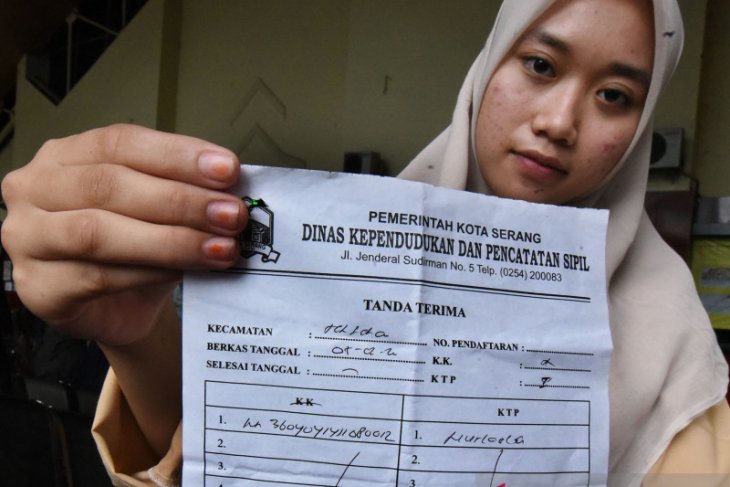 PEMERINTAH KOTA SERANG
DINAS KEPENDUDUKAN DAN PENCATATAN SIPIL
Jl. Jenderal Sudirman No. 5 Telp. (0254) 200083
TANDA TERIMA
KECAMATAN :
NO. PENDAFTARAN :
BERKAS TANGGAL :
K.K. :
SELESAI TANGGAL :
KTP :
KK KTP
1. 1.
2. 2.
3. 3.